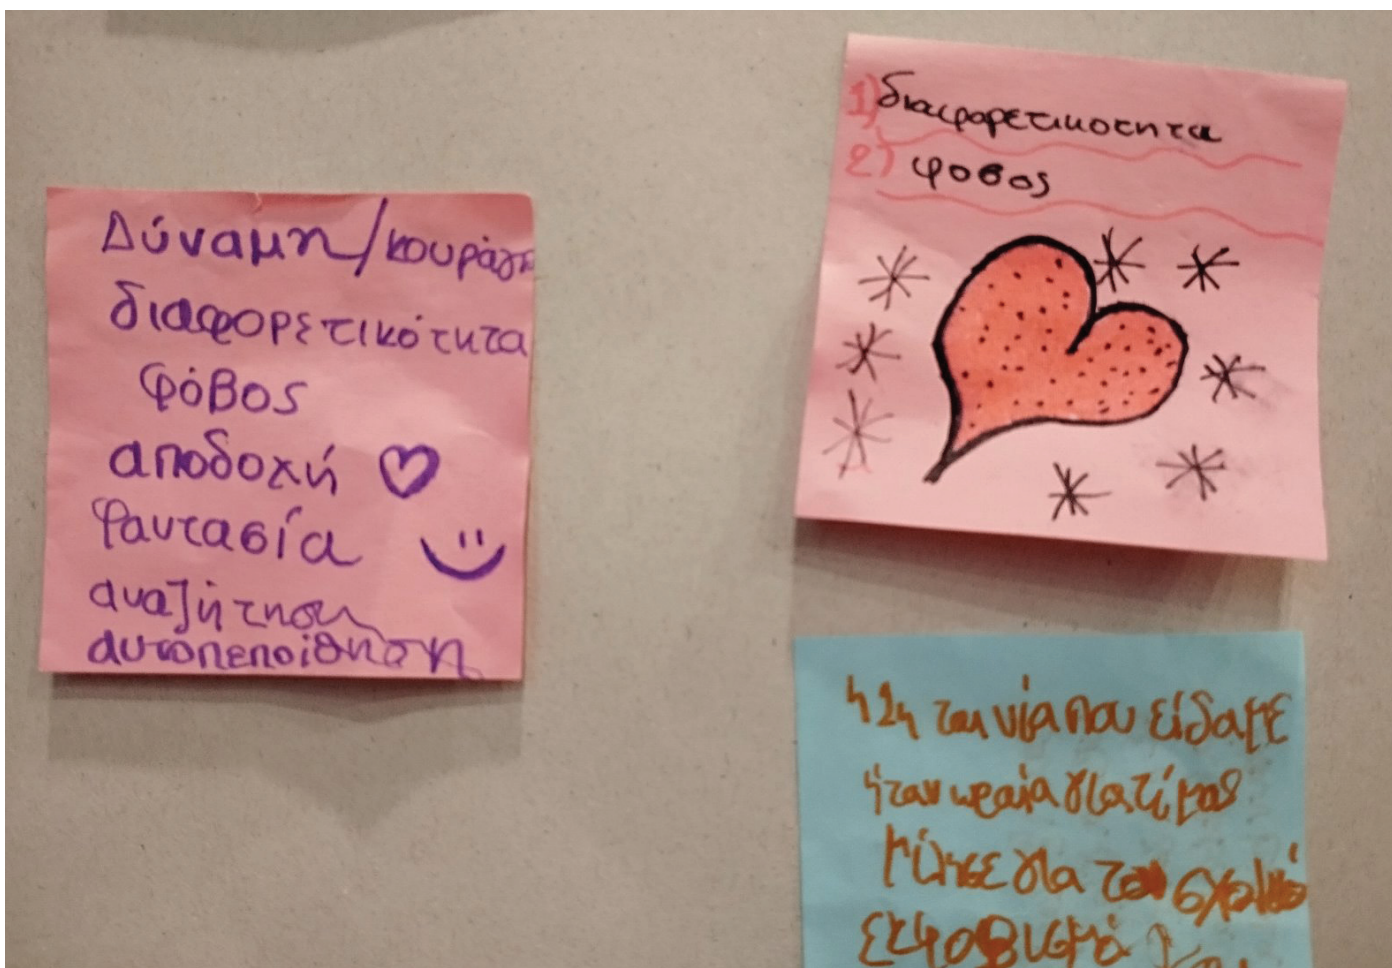 Δύναμη/κουράγιο
διαφορετικότητα
φόβος
αποδοχή
Φαντασία
αναζήτηση
αυτοπεποίθηση
1) διαφορετικοτητα
2) φοβος
η 2η ταινία που είδαμε
ήταν ωραία γιατί μας
μίλησε για τον σχολικό
εκφοβισμό